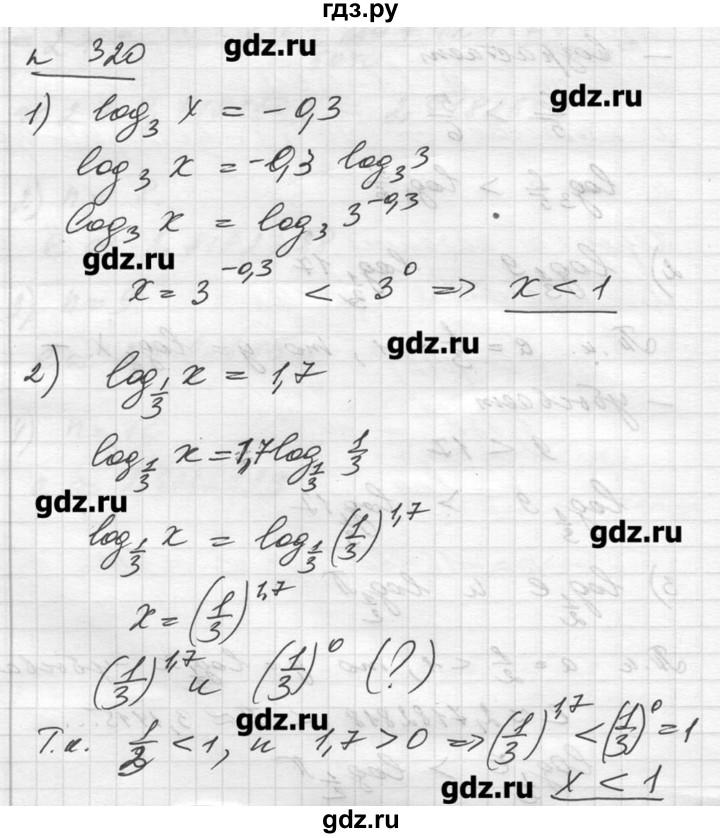 гдз.ру
n 320
gdz.ru
gdz.ru
1) log_3 x = -0,3
log_3 x = -0,3 log_3 3
log_3 x = log_3 3^{-0,3}
gdz.ru
x = 3^{-0,3} < 3^0 => x < 1
gdz.ru
2) log_{1/3} x = 1,7
log_{1/3} x = 1,7 log_{1/3} 1/3
gdz.ru
log_{1/3} x = log_{1/3} (1/3)^{1,7}
gdz.ru
x = (1/3)^{1,7}
(1/3)^{1,7} и (1/3)^0 (?)
gdz.ru
Т.к. 1/3 < 1, и 1,7 > 0 => (1/3)^{1,7} < (1/3)^0 = 1
gdz.ru
x < 1
gdz.ru